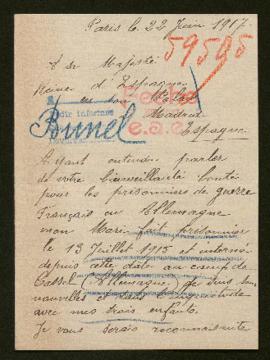 Paris le 22 Juin 1917
59595
A sa Majesté
Reine d'Espagne
en son
Madrid
Espagne
Fecha
e.a.c
Brunel
Ayant entendu parler
de votre bienveillante bonté
pour les prisonniers de guerre
Français en Allemagne
mon Mari fait prisonnier
le 13 Juillet 1915 et interné
depuis cette date au camp de
Cassel (Allemagne) je suis sans
nouvelles et suis
avec mes trois enfants.
Je vous serais reconnaissante